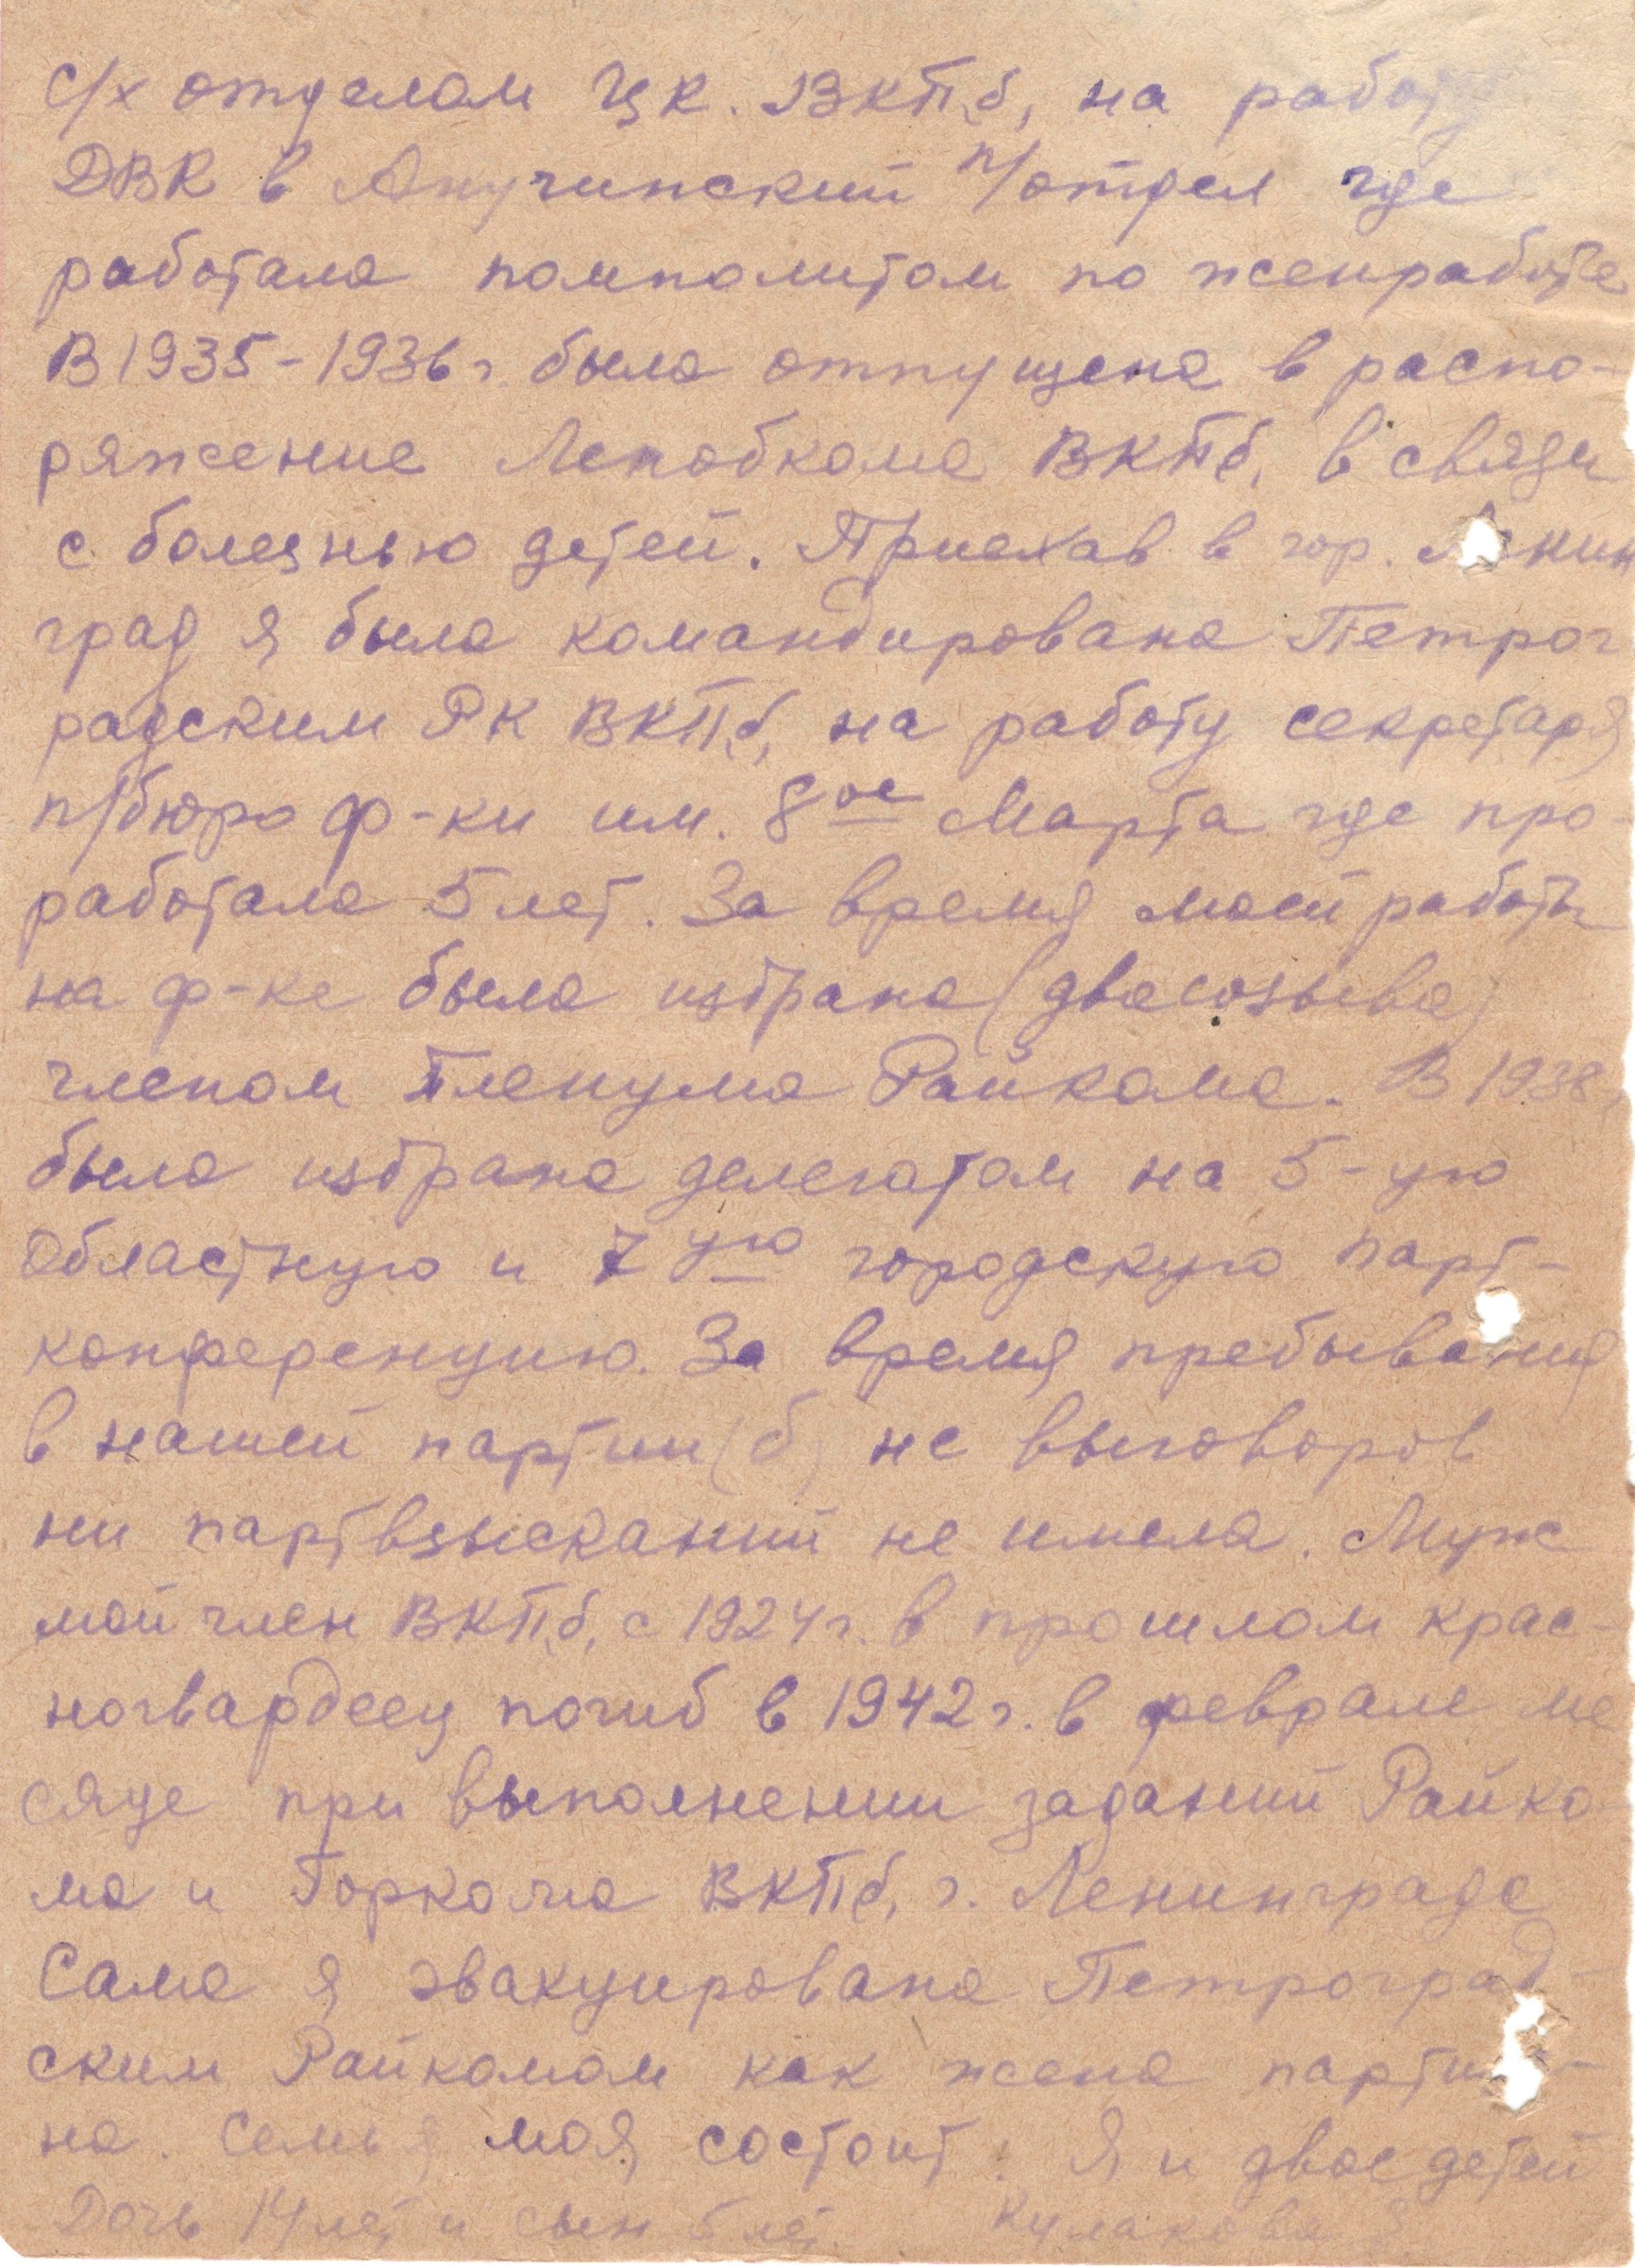 с/х отделом ЦК. ВКП(б), на работу
ДВК в Анучинский п/отдел где
работала помполитом по женработе
В 1935-1936 г. была отпущена в распо-
ряжение Ленобкома ВКП(б), в связи
с болезнью детей. Приехав в гор. Ленин
град я была командирована Петрог
радским РК ВКП(б), на работу секретаря
п/бюро ф-ки им. 8ое Марта где про-
работала 5 лет. За время моей работы
на ф-ке была избрана (два созыва)
членом Пленума Райкома. В 1938г
была избрана делегатом на 5-ую
Областную и 7ую городскую парт-
конференцию. За время пребывания
в нашей партии (б) не выговоров
ни партвзысканий не имела. Муж
мой член ВКП(б), с 1924 г. в прошлом крас-
ногвардеец погиб в 1942 г. в феврале ме
сяце при выполнении заданий Райко
ма и Горкома ВКП(б), г. Ленинграда
Сама я эвакуирована Петроград-
ским Райкомом как жена партий-
на. Семья моя состоит: Я и двое детей
Дочь 14 лет и сын лет Кулакова